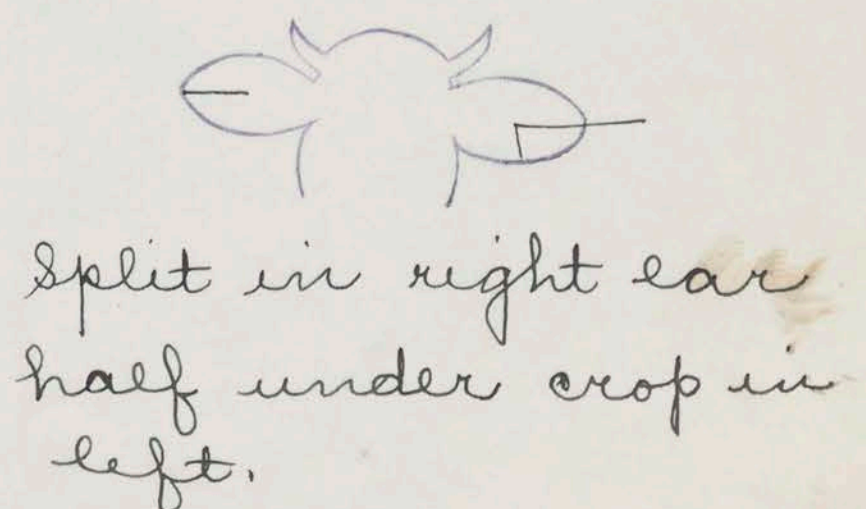 Split in right ear
half under crop in
left.